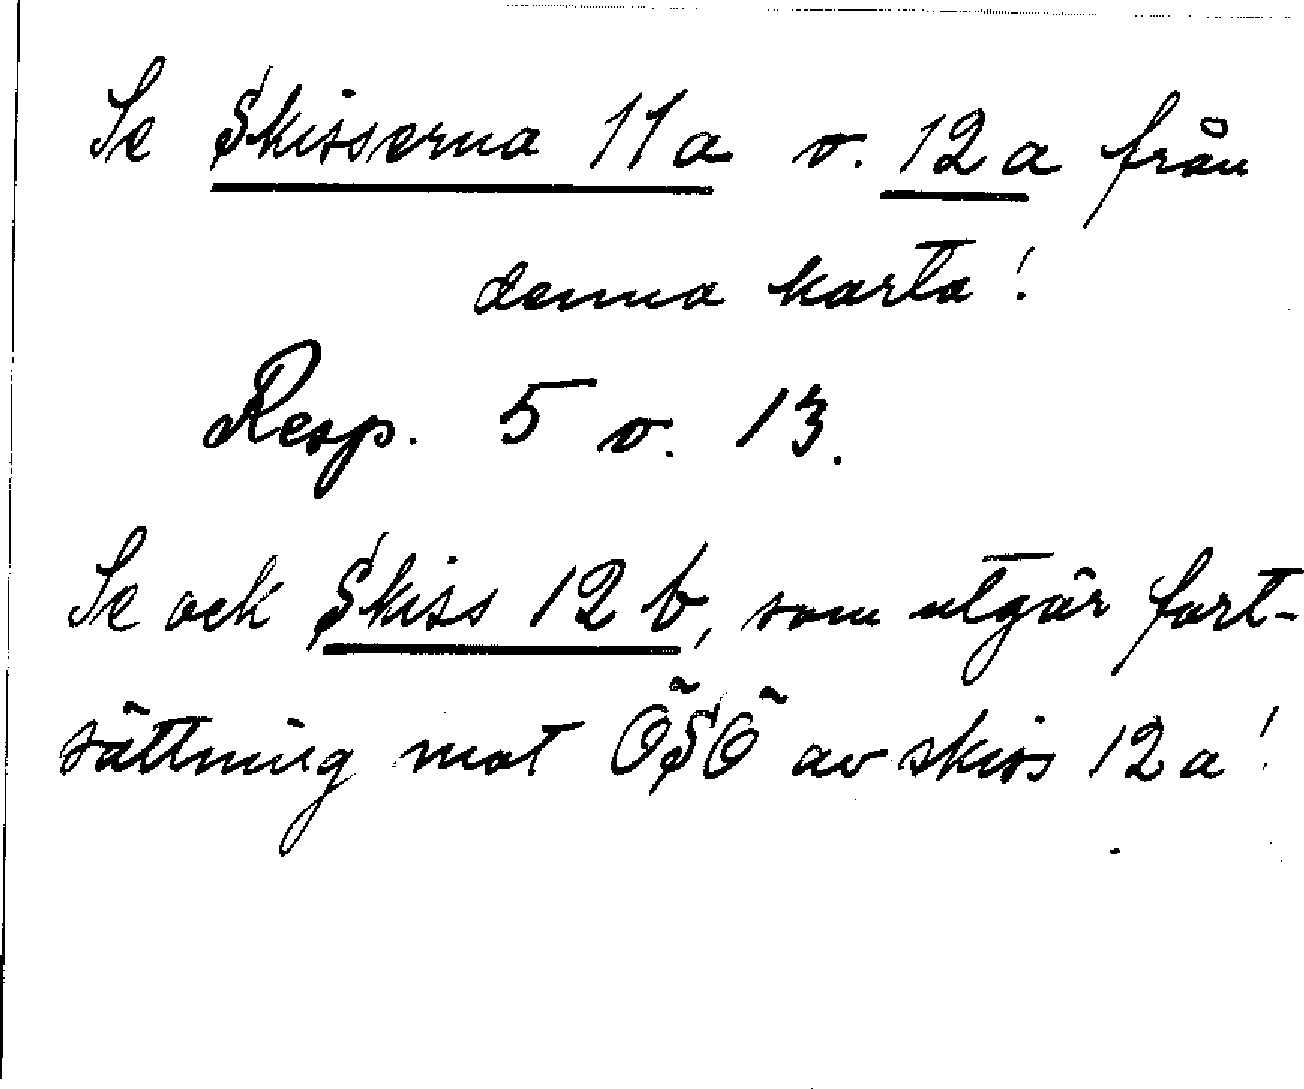 Se Skisserna 11a o. 12a från
denna karta!
Resp. 5 o. 13.
Se ock Skiss 12b, som utgör fort-
sättning mot ÖSÖ av skiss 12a!